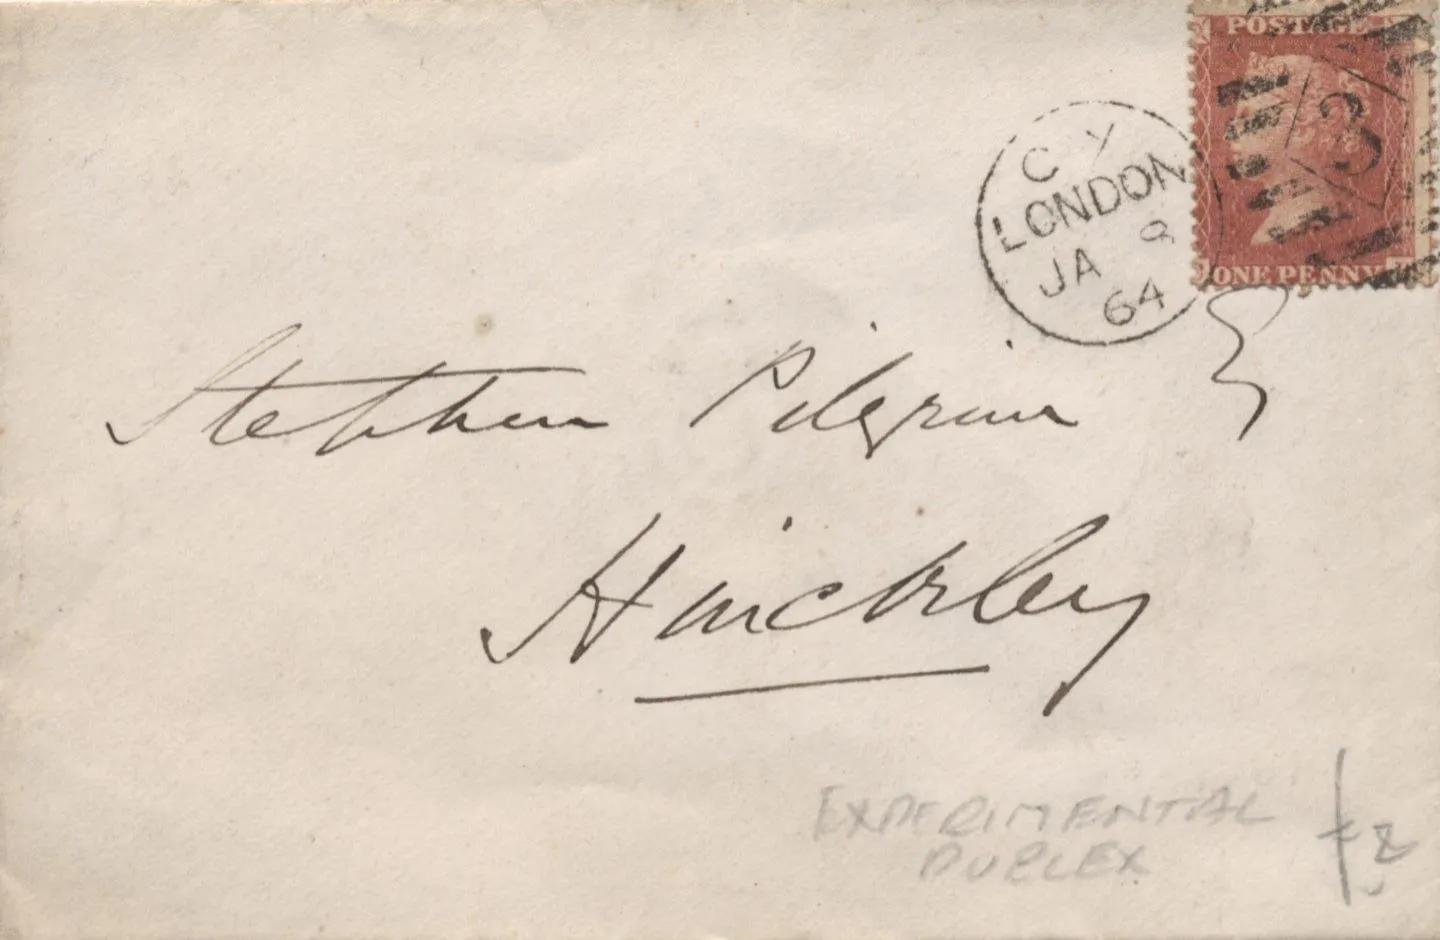 POSTAGE
3
C Y
LONDON
JA 8
64
ONE PENNY
Stephen Pilgrim
Hinckley
EXPERIMENTAL
DUPLEX